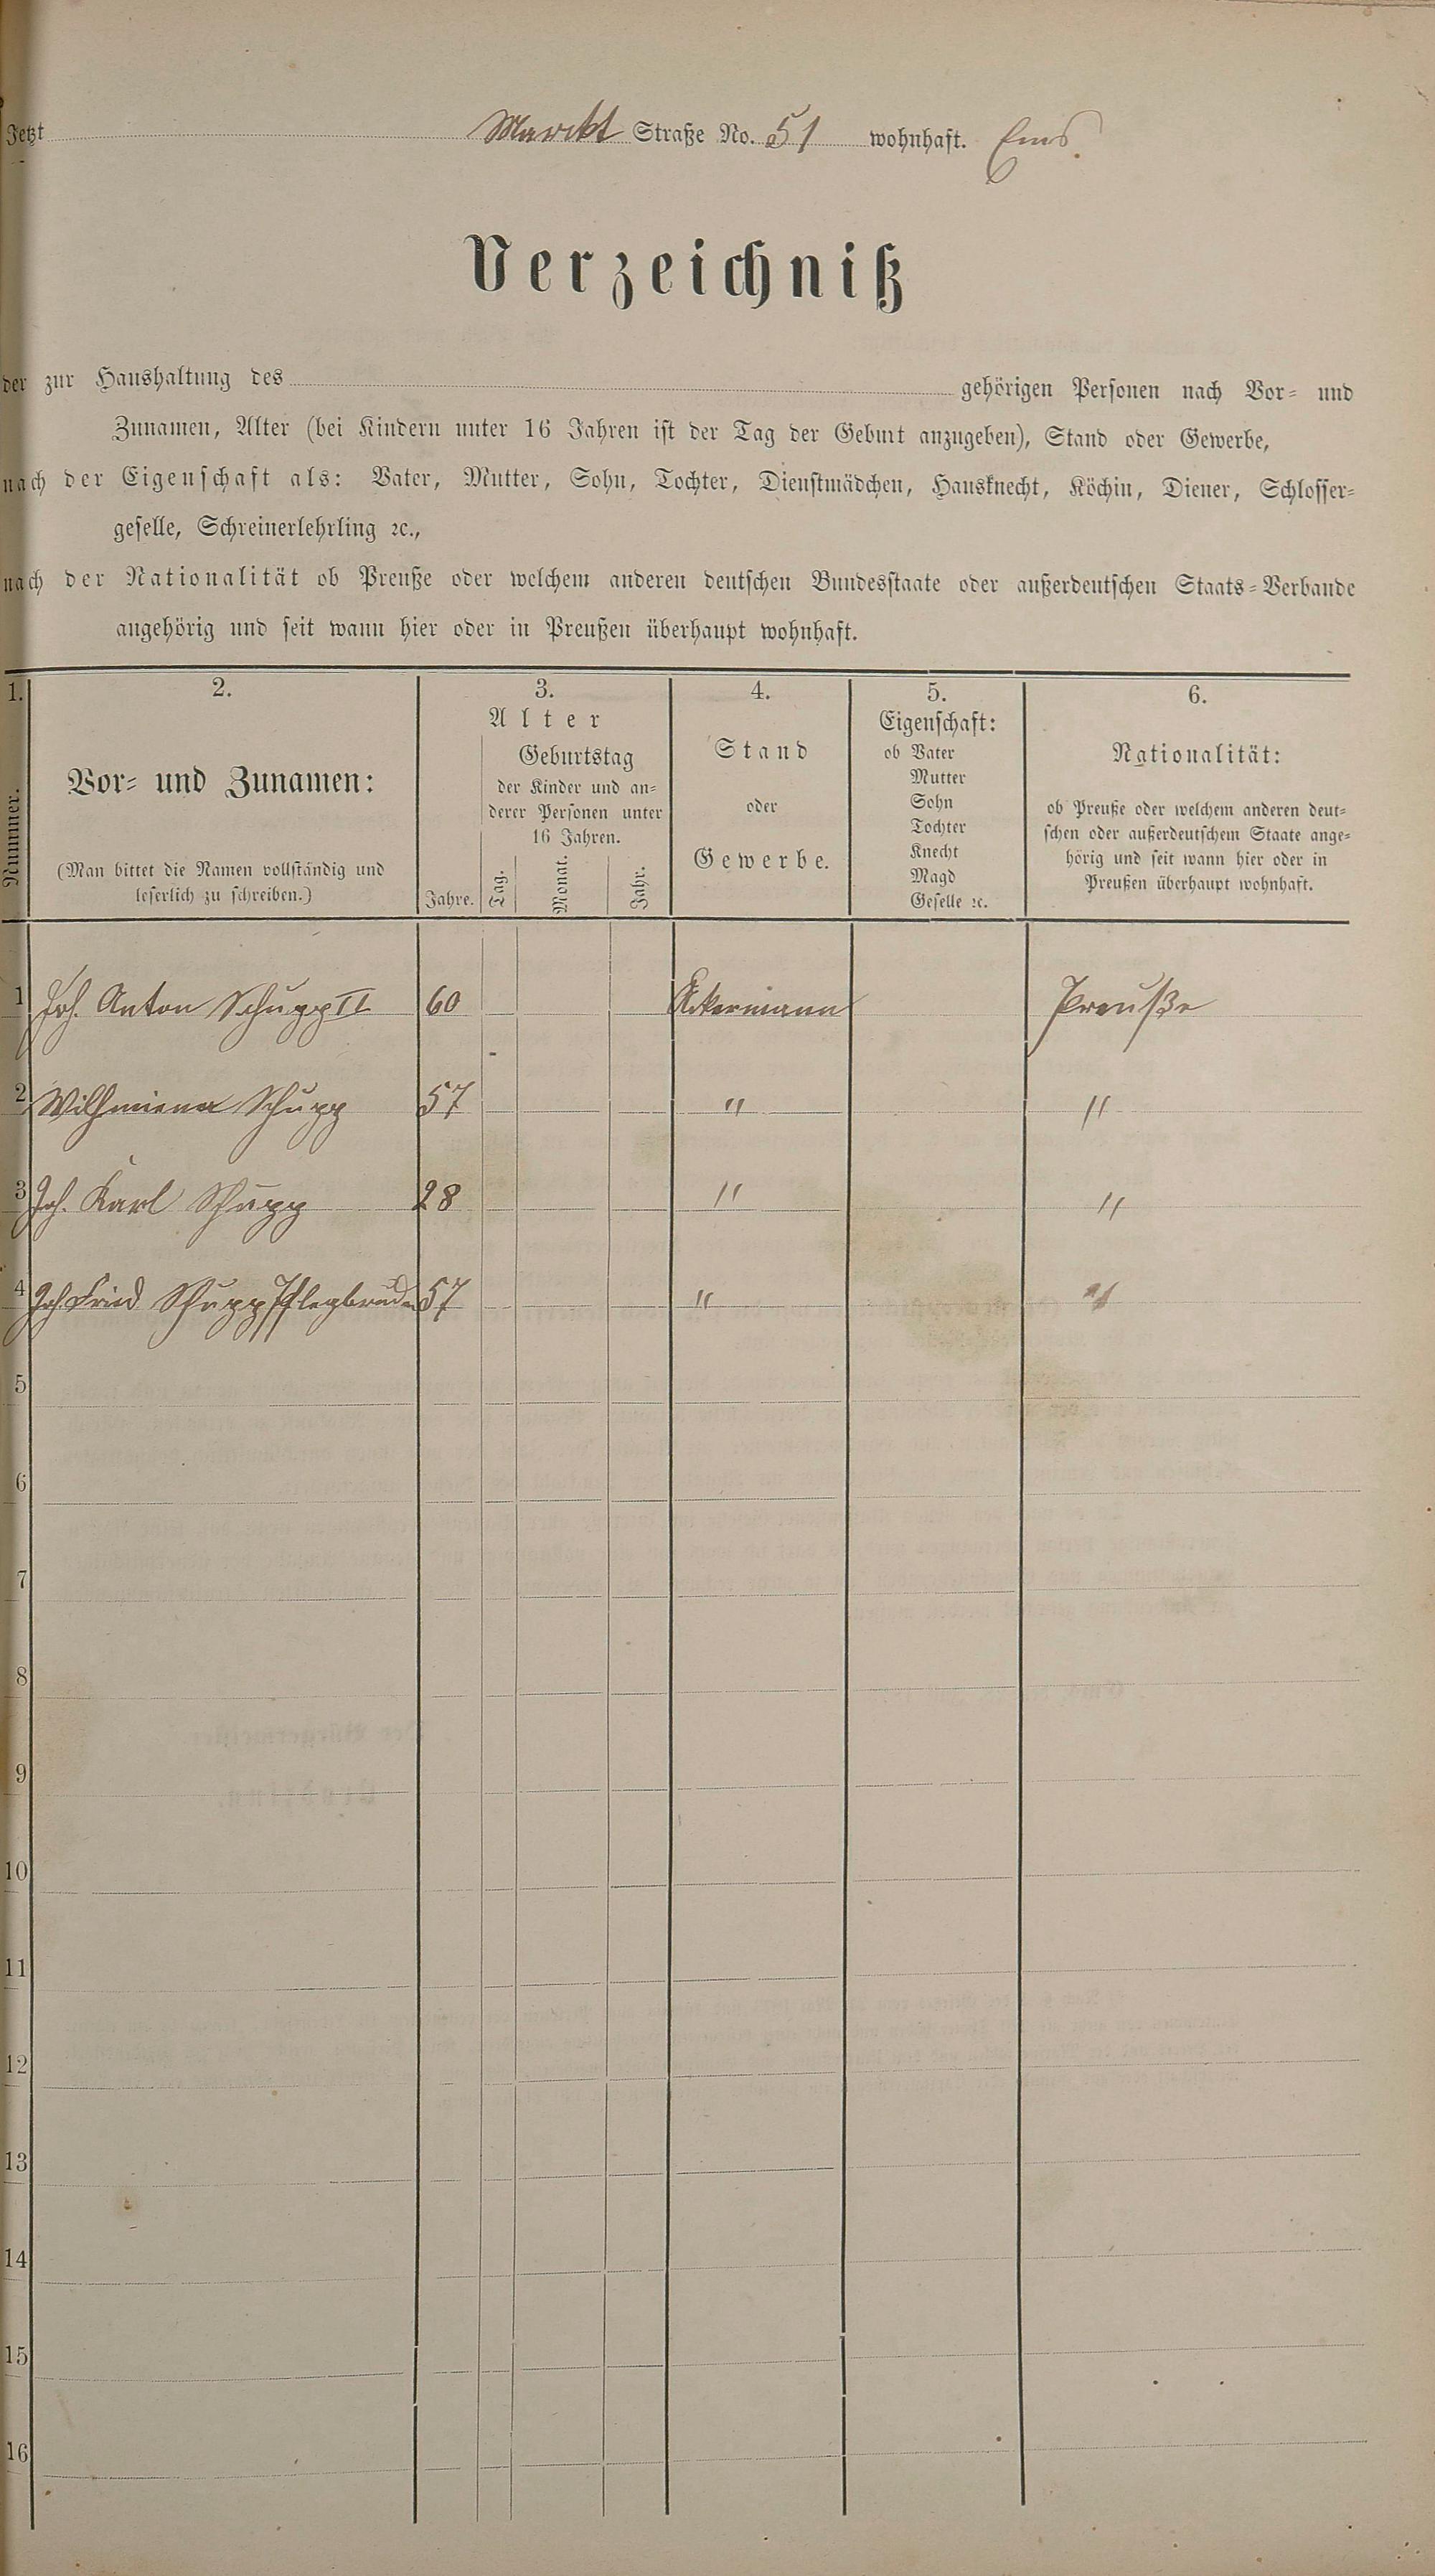 Jetzt Marckt Straße No. 51 wohnhaft. Ems.
Verzeichniß
der zur Haushaltung des gehörigen Personen nach Vor- und
Zunamen, Alter (bei Kindern unter 16 Jahren ist der Tag der Geburt anzugeben), Stand oder Gewerbe,
nach der Eigenschaft als: Vater, Mutter, Sohn, Tochter, Dienstmädchen, Hausknecht, Köchin, Diener, Schlosser-
geselle, Schreinerlehrling ꝛc.,
nach der Nationalität ob Preuße oder welchem anderen deutschen Bundesstaate oder außerdeutschen Staats-Verbande
angehörig und seit wann hier oder in Preußen überhaupt wohnhaft.
1.
Nummer.
2.
Vor- und Zunamen:
(Man bittet die Namen vollständig und
leserlich zu schreiben.)
3.
Alter
Jahre.
Geburtstag
der Kinder und an-
derer Personen unter
16 Jahren.
Tag. Monat. Jahr.
4.
Stand
oder
Gewerbe.
5.
Eigenschaft:
ob Vater
Mutter
Sohn
Tochter
Knecht
Magd
Geselle ꝛc.
6.
Nationalität:
ob Preuße oder welchem anderen deut-
schen oder außerdeutschem Staate ange-
hörig und seit wann hier oder in
Preußen überhaupt wohnhaft.
1 Joh. Anton Schupp II 60 Ackermann Preuße
2 Wilhmiena Schupp 57 " "
3 Joh. Karl Schupp 28 " "
4 Joh Fried Schupp Pflegbruder 57 " "
5
6
7
8
9
10
11
12
13
14
15
16